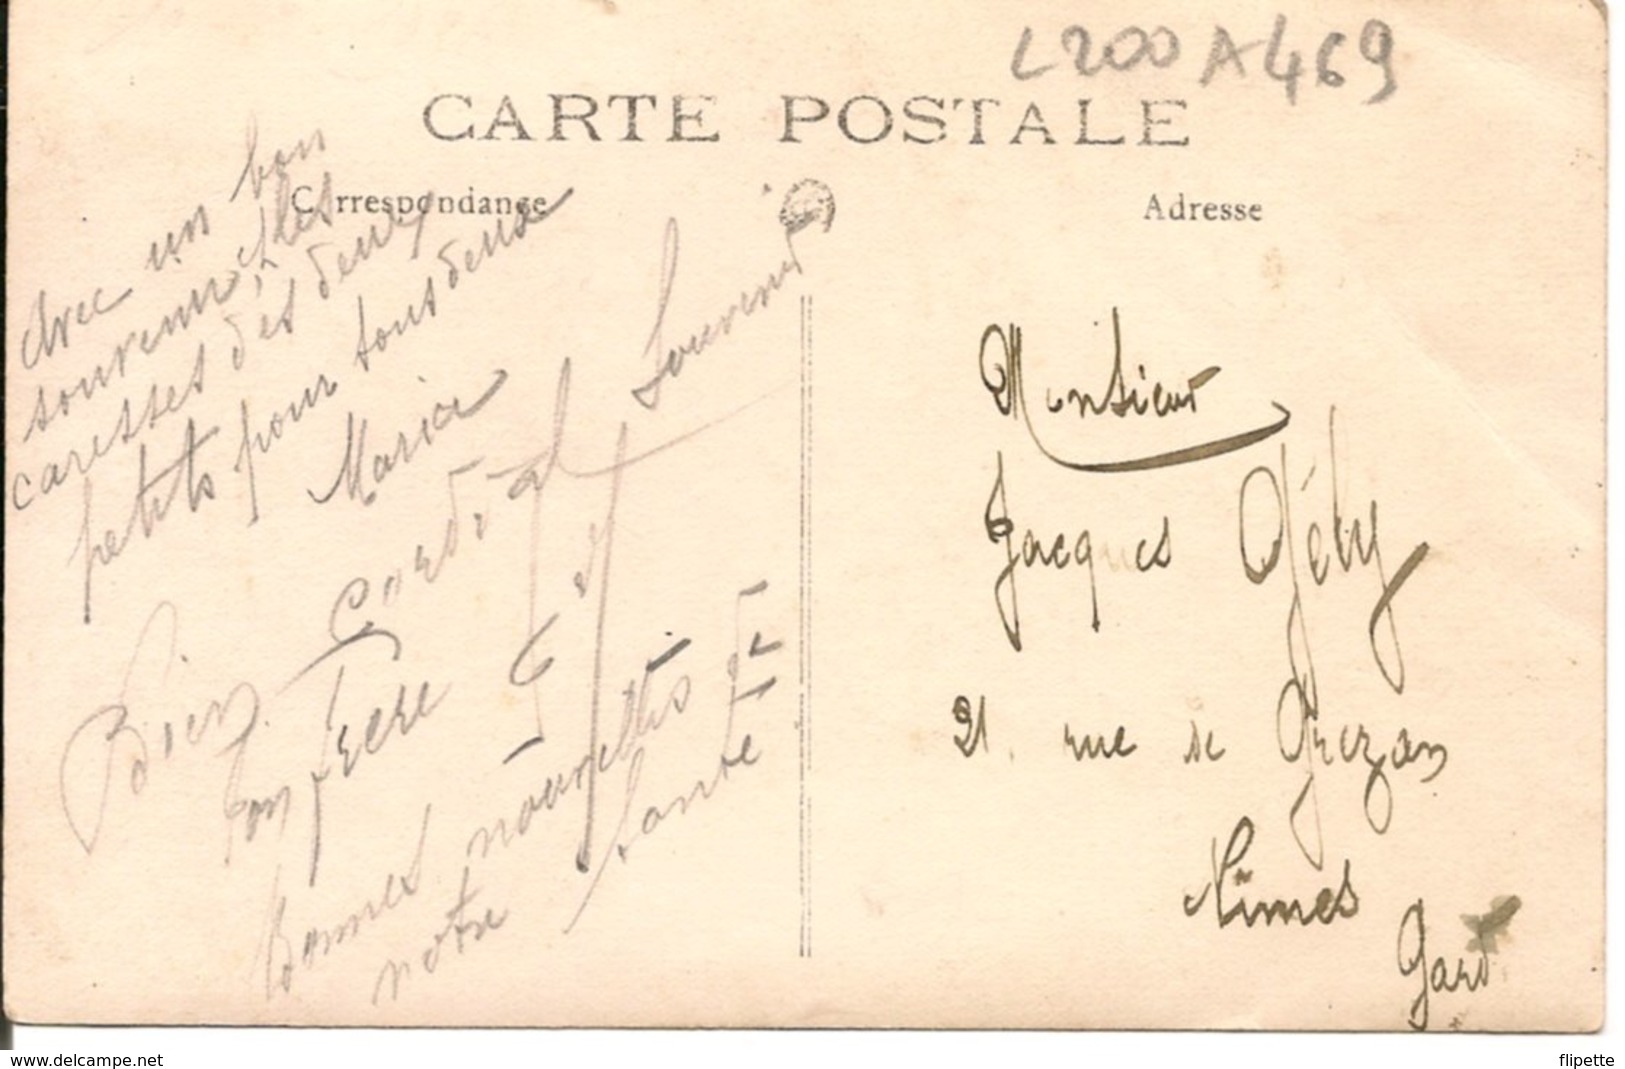 L200 A 469
CARTE POSTALE
Correspondance
Adresse
avec un bon
souvenir, les
caresses dès deux
petits pour tous deux
Maria
Bien Cordial Souvenir
ton frère
Bonnes nouvelles de
notre santé
Monsieur
Jacques Gély
21 rue de Grezan
Nîmes
Gard
www.delcampe.net
flipette